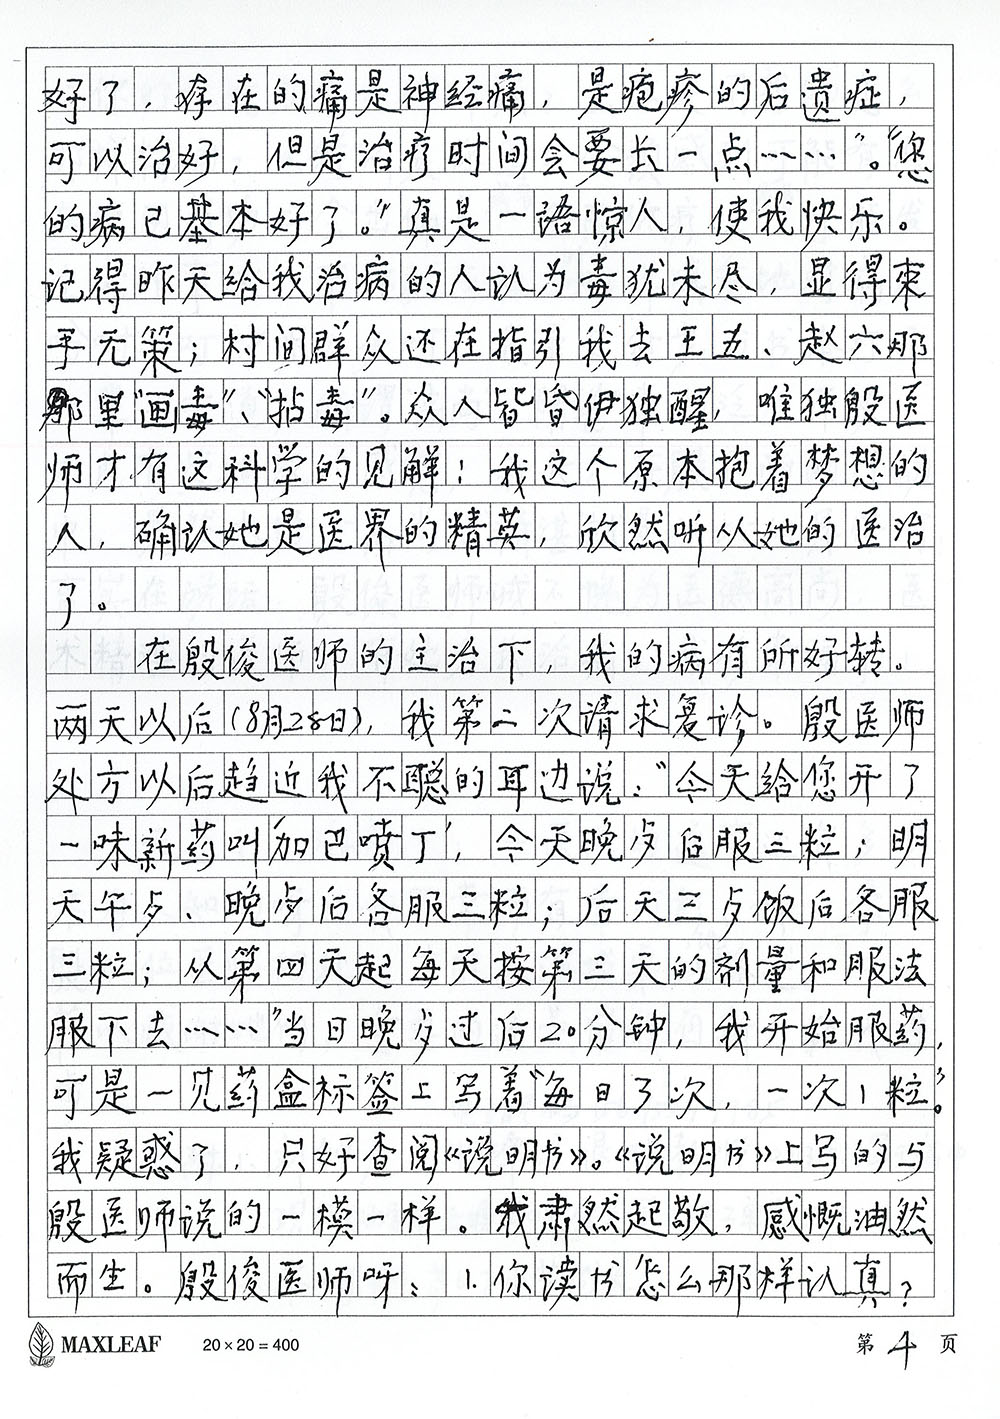 好了，存在的痛是神经痛，是疱疹的后遗症，
可以治好，但是治疗时间会要长一点……”。“您
的病已基本好了。”真是一语惊人，使我快乐。
记得昨天给我治病的人认为毒犹未尽，显得束
手无策；村间群众还在指引我去王五、赵六那
那里“画毒”、“拈毒”。众人皆昏伊独醒，唯独殷医
师才有这科学的见解！我这个原本抱着梦想的
人，确认她是医界的精英，欣然听从她的医治
了。
在殷俊医师的主治下，我的病有所好转。
两天以后（8月28日），我第二次请求复诊。殷医师
处方以后趋近我不聪的耳边说：“今天给您开了
一味新药叫‘加巴喷丁’，今天晚歺后服三粒；明
天午歺、晚歺后各服三粒；后天三歺饭后各服
三粒；从第四天起每天按第三天的剂量和服法
服下去……”当日晚歺过后20分钟，我开始服药，
可是一见药盒标签上写着“每日3次，一次1粒。”
我疑惑了，只好查阅《说明书》。《说明书》上写的与
殷医师说的一模一样。我肃然起敬，感慨油然
而生。殷俊医师呀：1.你读书怎么那样认真？
MAXLEAF 20×20=400 第4页